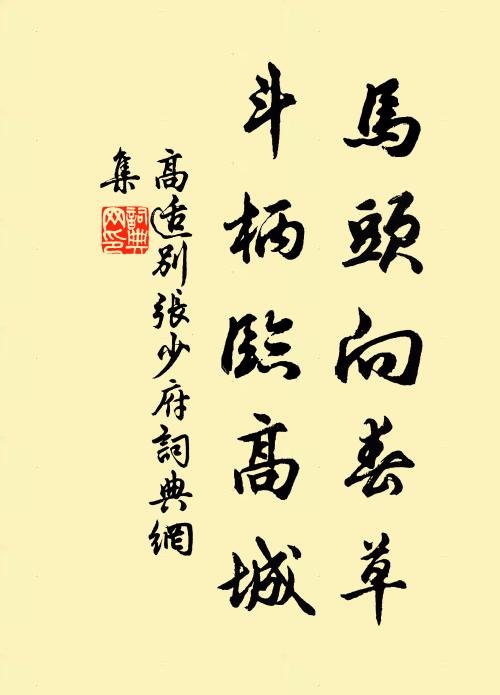 馬頭向春草
斗柄臨高城
高適別張少府詞典網
集
詞典
网印